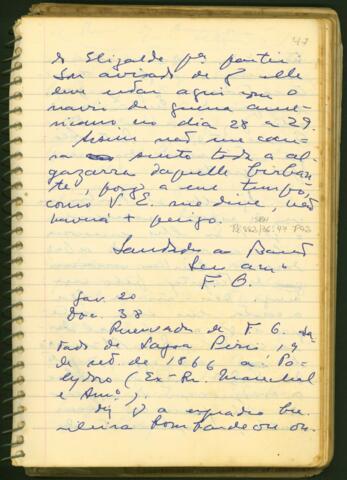 47
de Elizalde pª partir
Sou avisado de q elle
deve estar aqui com o
navio de guerra ame-
ricano no dia 28 a 29.
Assim não me cau-
sa susto toda a al-
gazarra daquelle birban-
te, porq a esse tempo,
como V E. me disse, não
haverá + perigo.
Saudades ao Barão
Seu amº
F. O.
Gav. 20
Doc. 38
Reservada de F. O. da-
tada de Lagoa Pires, 19
de set. de 1866 a Po-
lydro (Exº Sr. Marechal
e Amº).
Diz V a esquadra bra-
sileira bombardeou on-